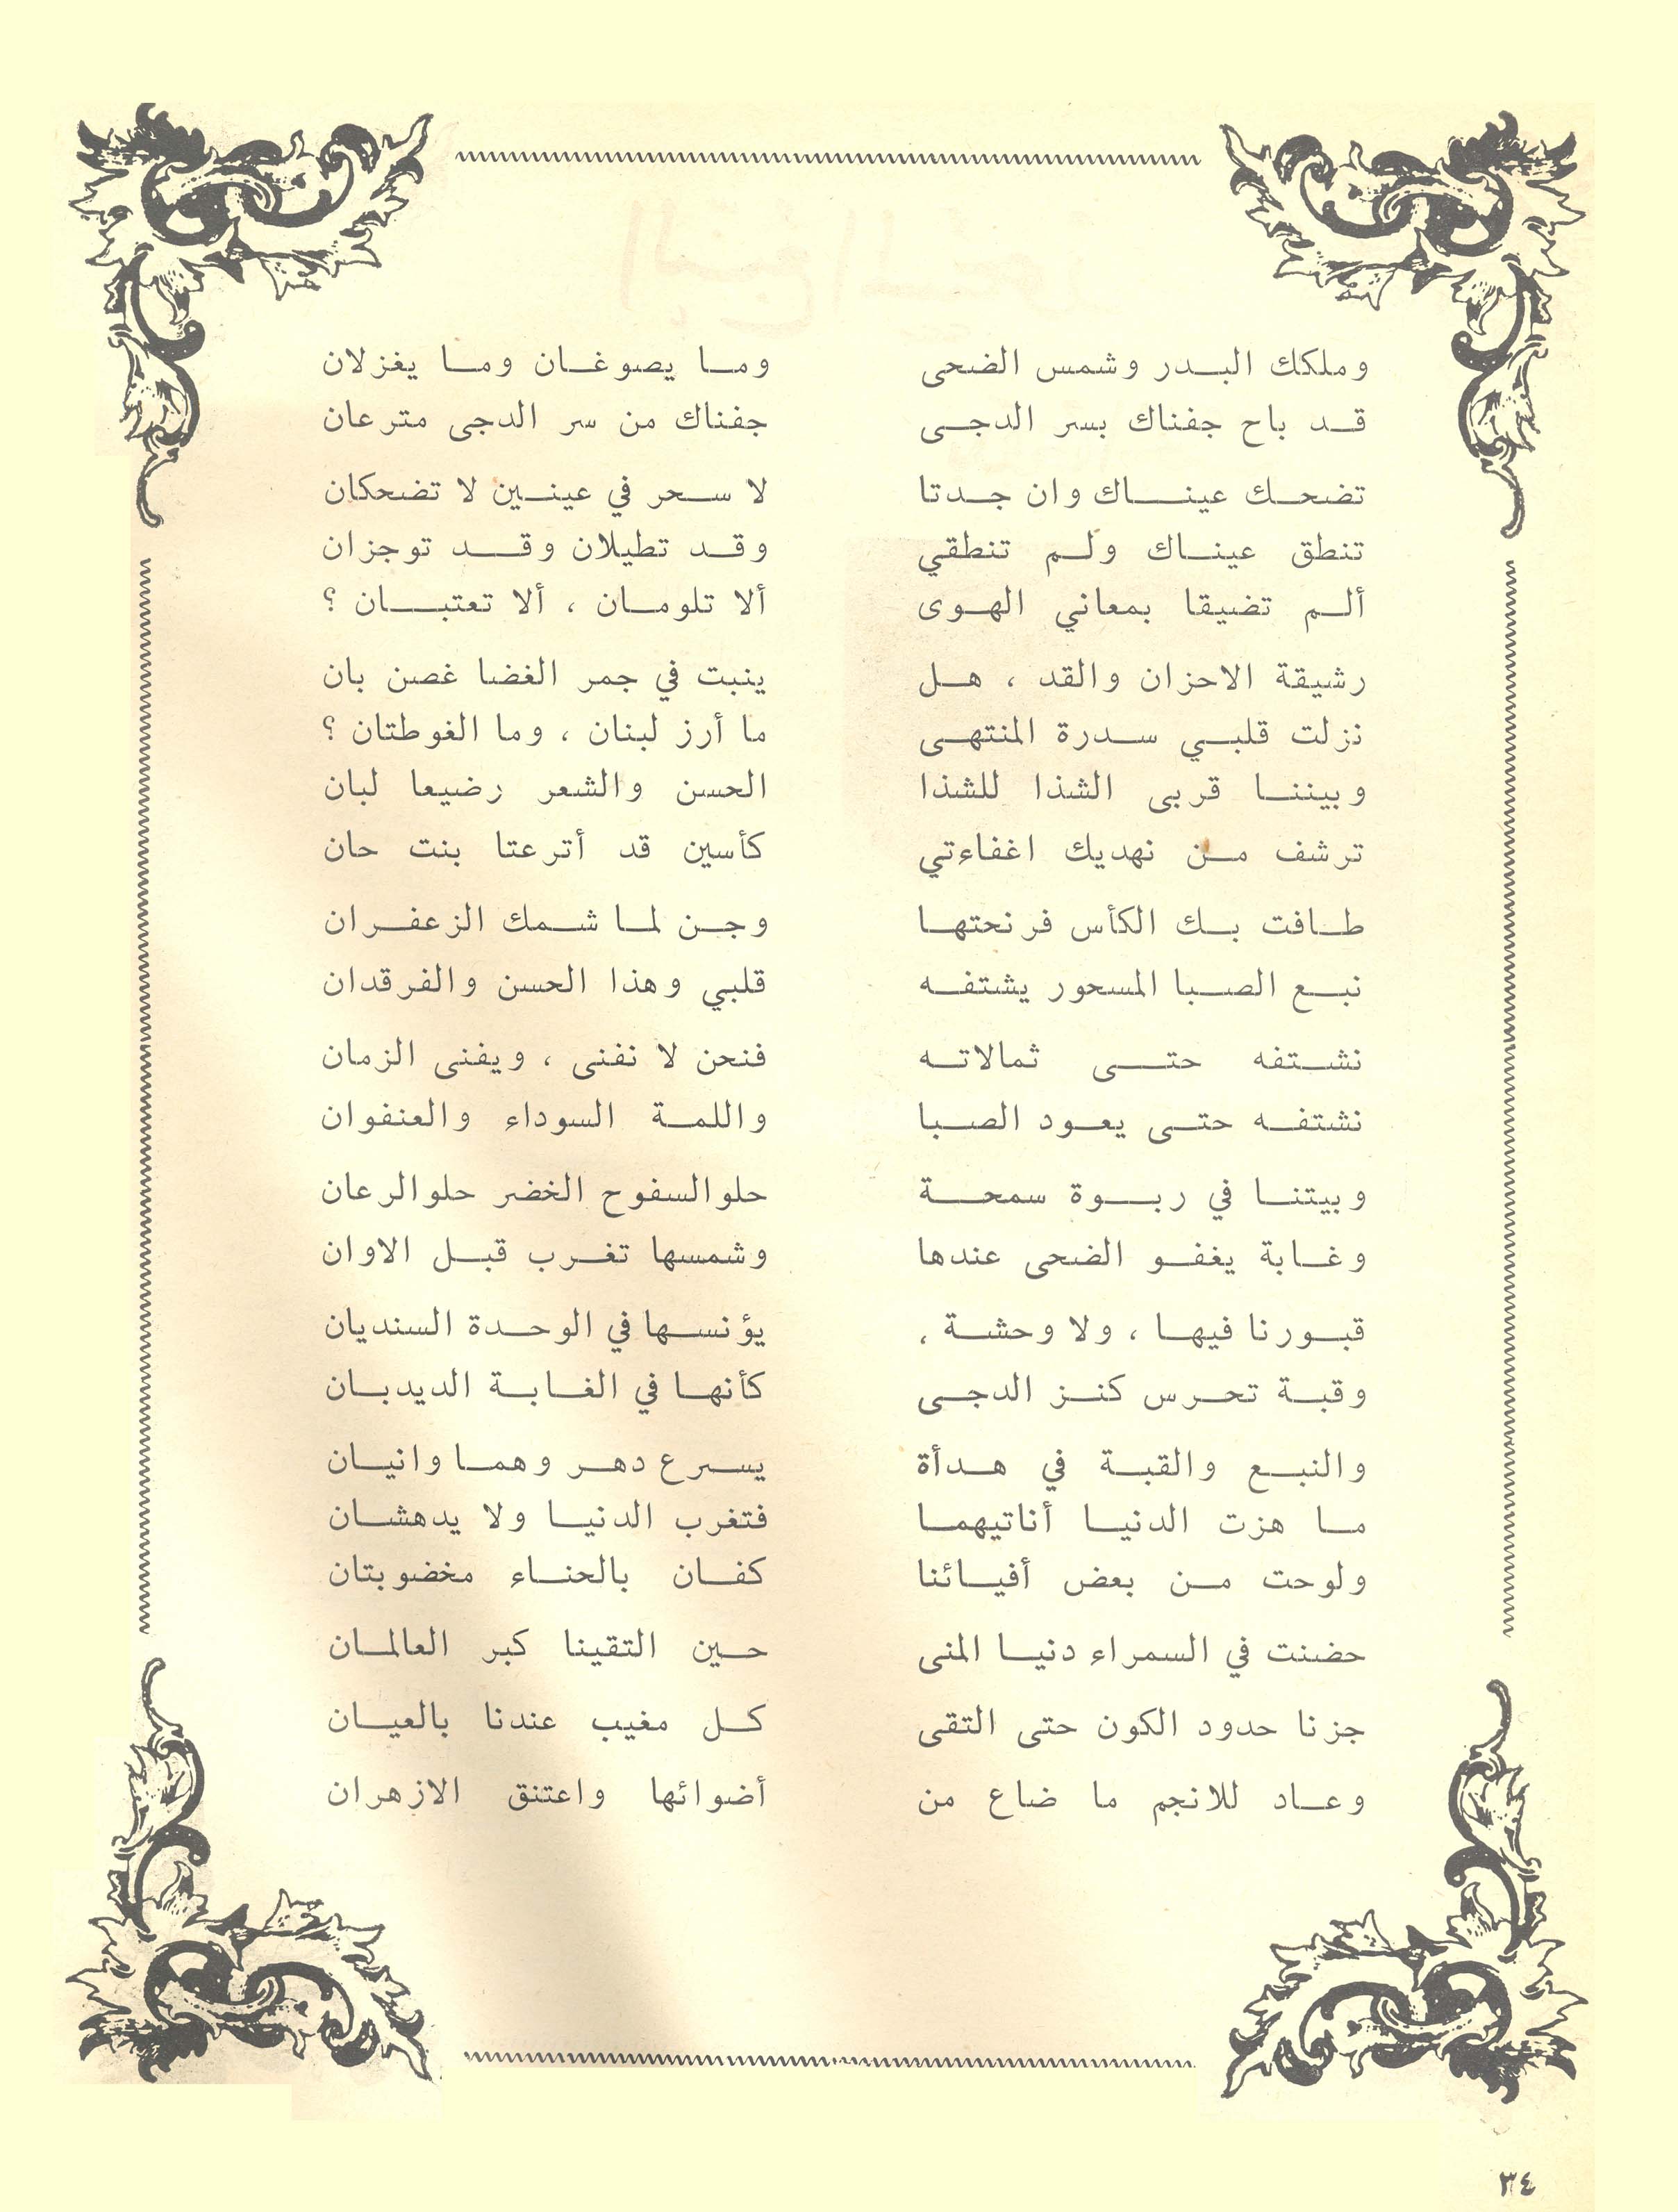 وملكك البدر وشمس الضحى وما يصوغان وما يغزلان
قد باح جفناك بسر الدجى جفناك من سر الدجى مترعان
تضحك عيناك وان جدتا لا سحر في عينين لا تضحكان
تنطق عيناك ولم تنطقي وقد تطيلان وقد توجزان
ألم تضيقا بمعاني الهوى ألا تلومان ، ألا تعتبان ؟
رشيقة الاحزان والقد ، هل ينبت في جمر الغضا غصن بان
نزلت قلبي سدرة المنتهى ما أرز لبنان ، وما الغوطتان ؟
وبيننا قربى الشذا للشذا الحسن والشعر رضيعا لبان
ترشف من نهديك اغفاءتي كأسين قد أترعتا بنت حان
طافت بك الكأس فرنحتها وجن لما شمك الزعفران
نبع الصبا المسحور يشتفه قلبي وهذا الحسن والفرقدان
نشتفه حتى ثمالاته فنحن لا نفنى ، ويفنى الزمان
نشتفه حتى يعود الصبا واللمة السوداء والعنفوان
وبيتنا في ربوة سمحة حلو السفوح الخضر حلو الرعان
وغابة يغفو الضحى عندها وشمسها تغرب قبل الاوان
قبورنا فيها ، ولا وحشة ، يؤنسها في الوحدة السنديان
وقبة تحرس كنز الدجى كأنها في الغابة الديدبان
والنبع والقبة في هدأة يسرع دهر وهما وانيان
ما هزت الدنيا أناتيهما فتغرب الدنيا ولا يدهشان
ولوحت من بعض أفيائنا كفان بالحناء مخضوبتان
حضنت في السمراء دنيا المنى حين التقينا كبر العالمان
جزنا حدود الكون حتى التقى كل مغيب عندنا بالعيان
وعاد للانجم ما ضاع من أضوائها واعتنق الازهران
٣٤